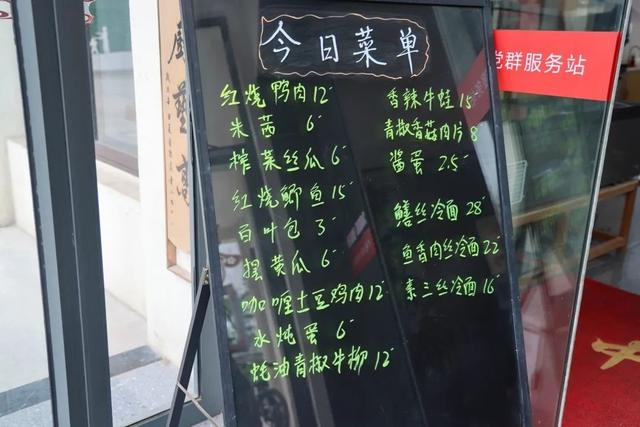 今日菜单
红烧鸭肉 12
米苋 6
榨菜丝瓜 6
红烧鲫鱼 15
百叶包 3
拌黄瓜 6
咖喱土豆鸡肉 12
水炖蛋 6
蚝油青椒牛柳 12
香辣牛蛙 15
青椒香菇肉片 8
酱蛋 2.5
鳝丝冷面 28
鱼香肉丝冷面 22
素三丝冷面 16
党群服务站